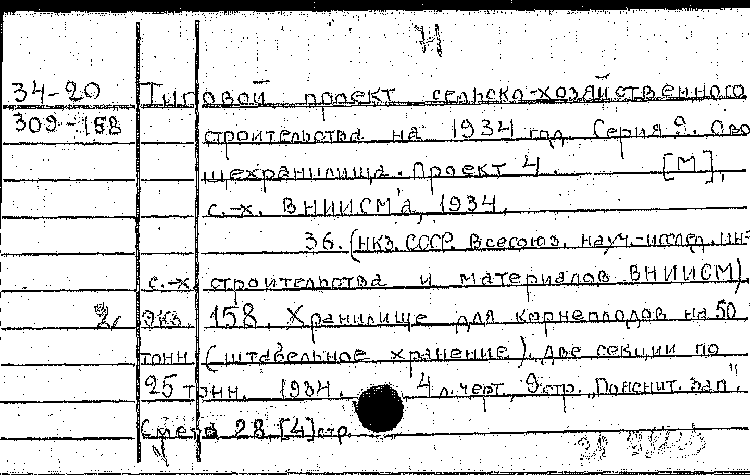 Н
34-20 Типовой проект сельско-хозяйственного
309-158 строительства на 1934 год. Серия 9. Ово
щехранилища. Проект 4. [М],
с.-х. ВНИИСМ'а, 1934.
36. (НКЗ. СССР. Всесоюз. науч.-исслед. ин-т
с.-х. строительства и материалов ВНИИСМ).
2, экз. 158. Хранилище для корнеплодов на 50
тонн (штабельное хранение). Две секции по
25 тонн. 1934. 4 л. черт., 9 стр. „Пояснит. зап",
Смета 28, [4] стр.